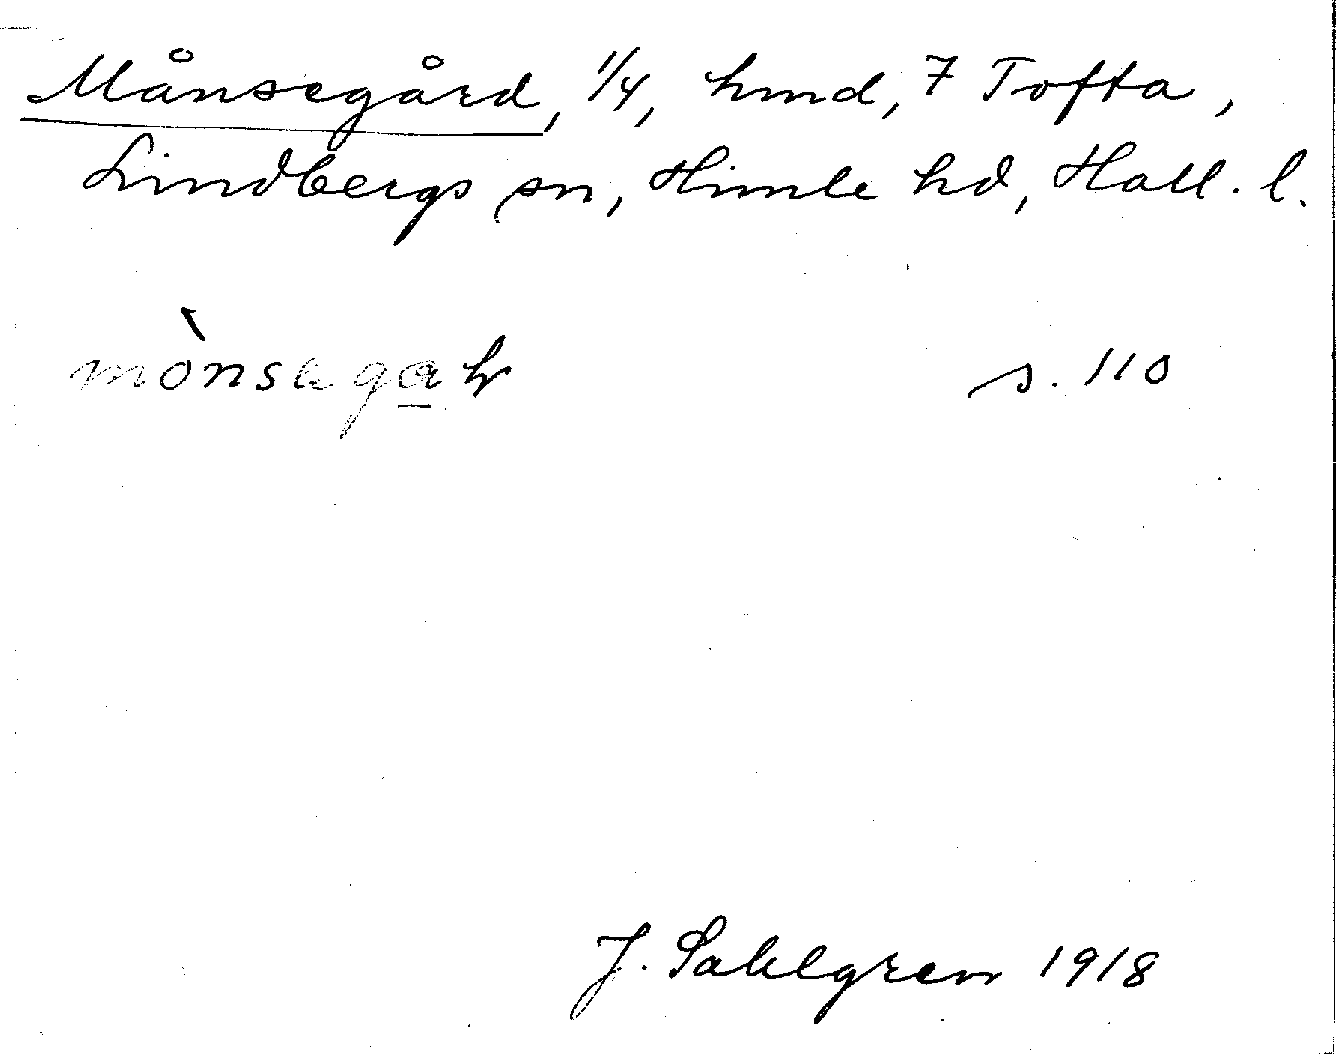 Månsegård, 1/4, hmd, 7 Tofta,
Lindbergs sn, Himle hd, Hall. l.
s. 110
J. Sahlgren 1918